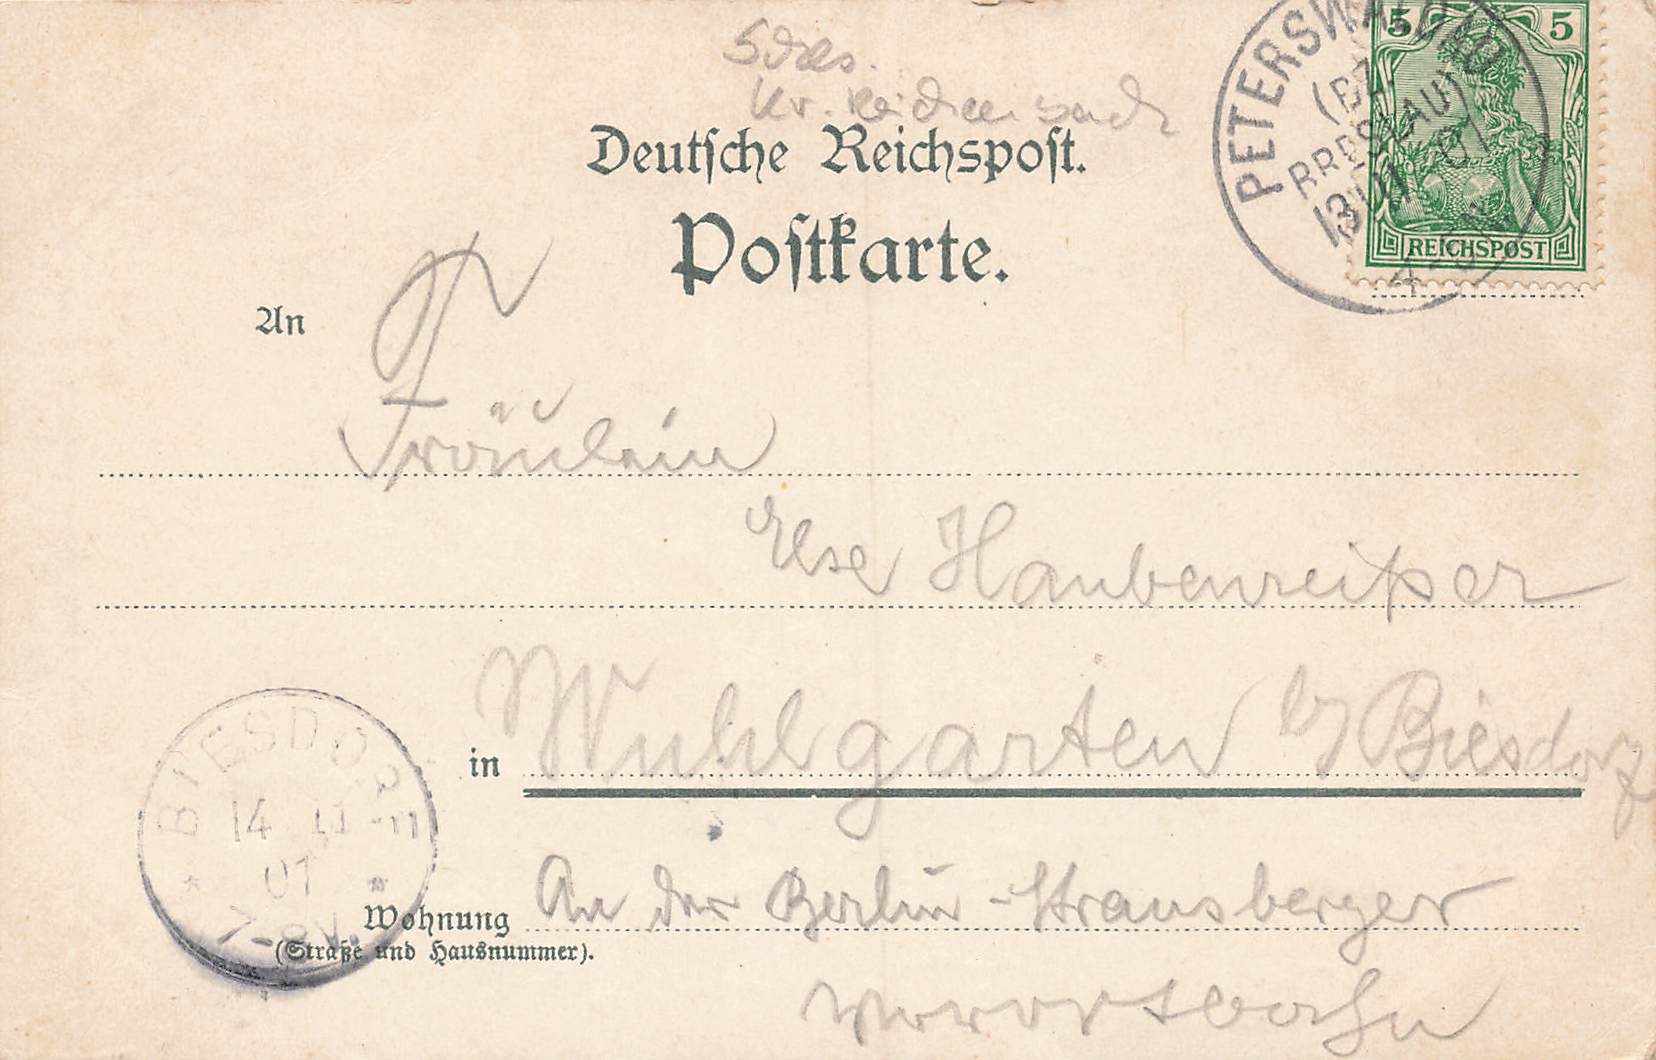 Kr. Reichenbach
Deutsche Reichspost.
Postkarte.
5 5
REICHSPOST
PETERSWALDAU
(BZ.
BRESLAU)
13 11 01
An
Fräulein
Else Haubenreißer
in Wuhlgarten b/ Biesdorf
BIESDORF
14 11
01
7-8V.
Wohnung An der Berlin-Strausberger
(Straße und Hausnummer).
Vorortbahn